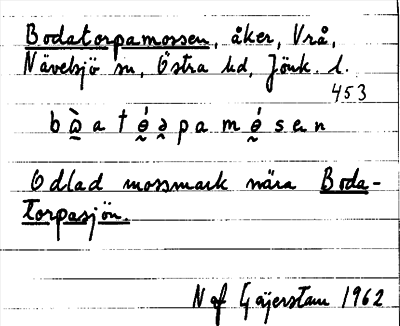 Bodatorpamossen, åker, Vrå,
Nävelsjö sn, Östra hd, Jönk. l.
453
Odlad mossmark nära Boda-
torpasjön.
N af Geijerstam 1962